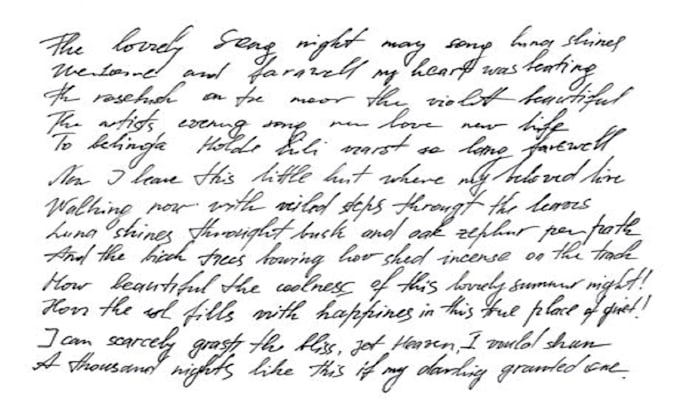 The lovely Song night may song luna shines
Welcome and farawell my heart was beating
The rosebush on the moor the violett beautiful
The artists evening song new love new life
To belinda Holde Lili warst so long farewell
Now I leave this little hut where my beloved live
Walking now with veiled steps througt the leaves
Luna shines throught bush and oak zephur per path
And the birch trees bowing low shed incense on the track
How beautiful the coolness of this lovely summer night!
How the sol fills with happines in this true place of quiet!
I can scarcely grasp the bliss, yet Heaven, I would shun
A thousand nights like this if my darling granted one.